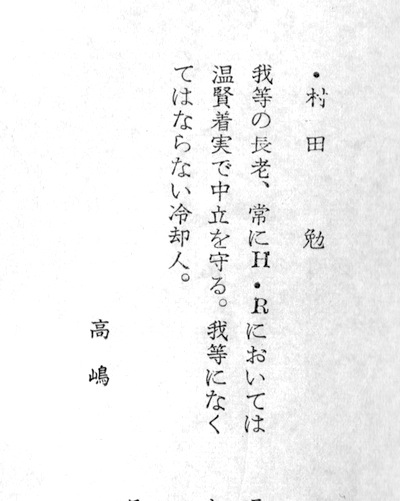 ・村田 勉
我等の長老、常にH・Rにおいては
温賢着実で中立を守る。我等になく
てはならない冷却人。
高嶋